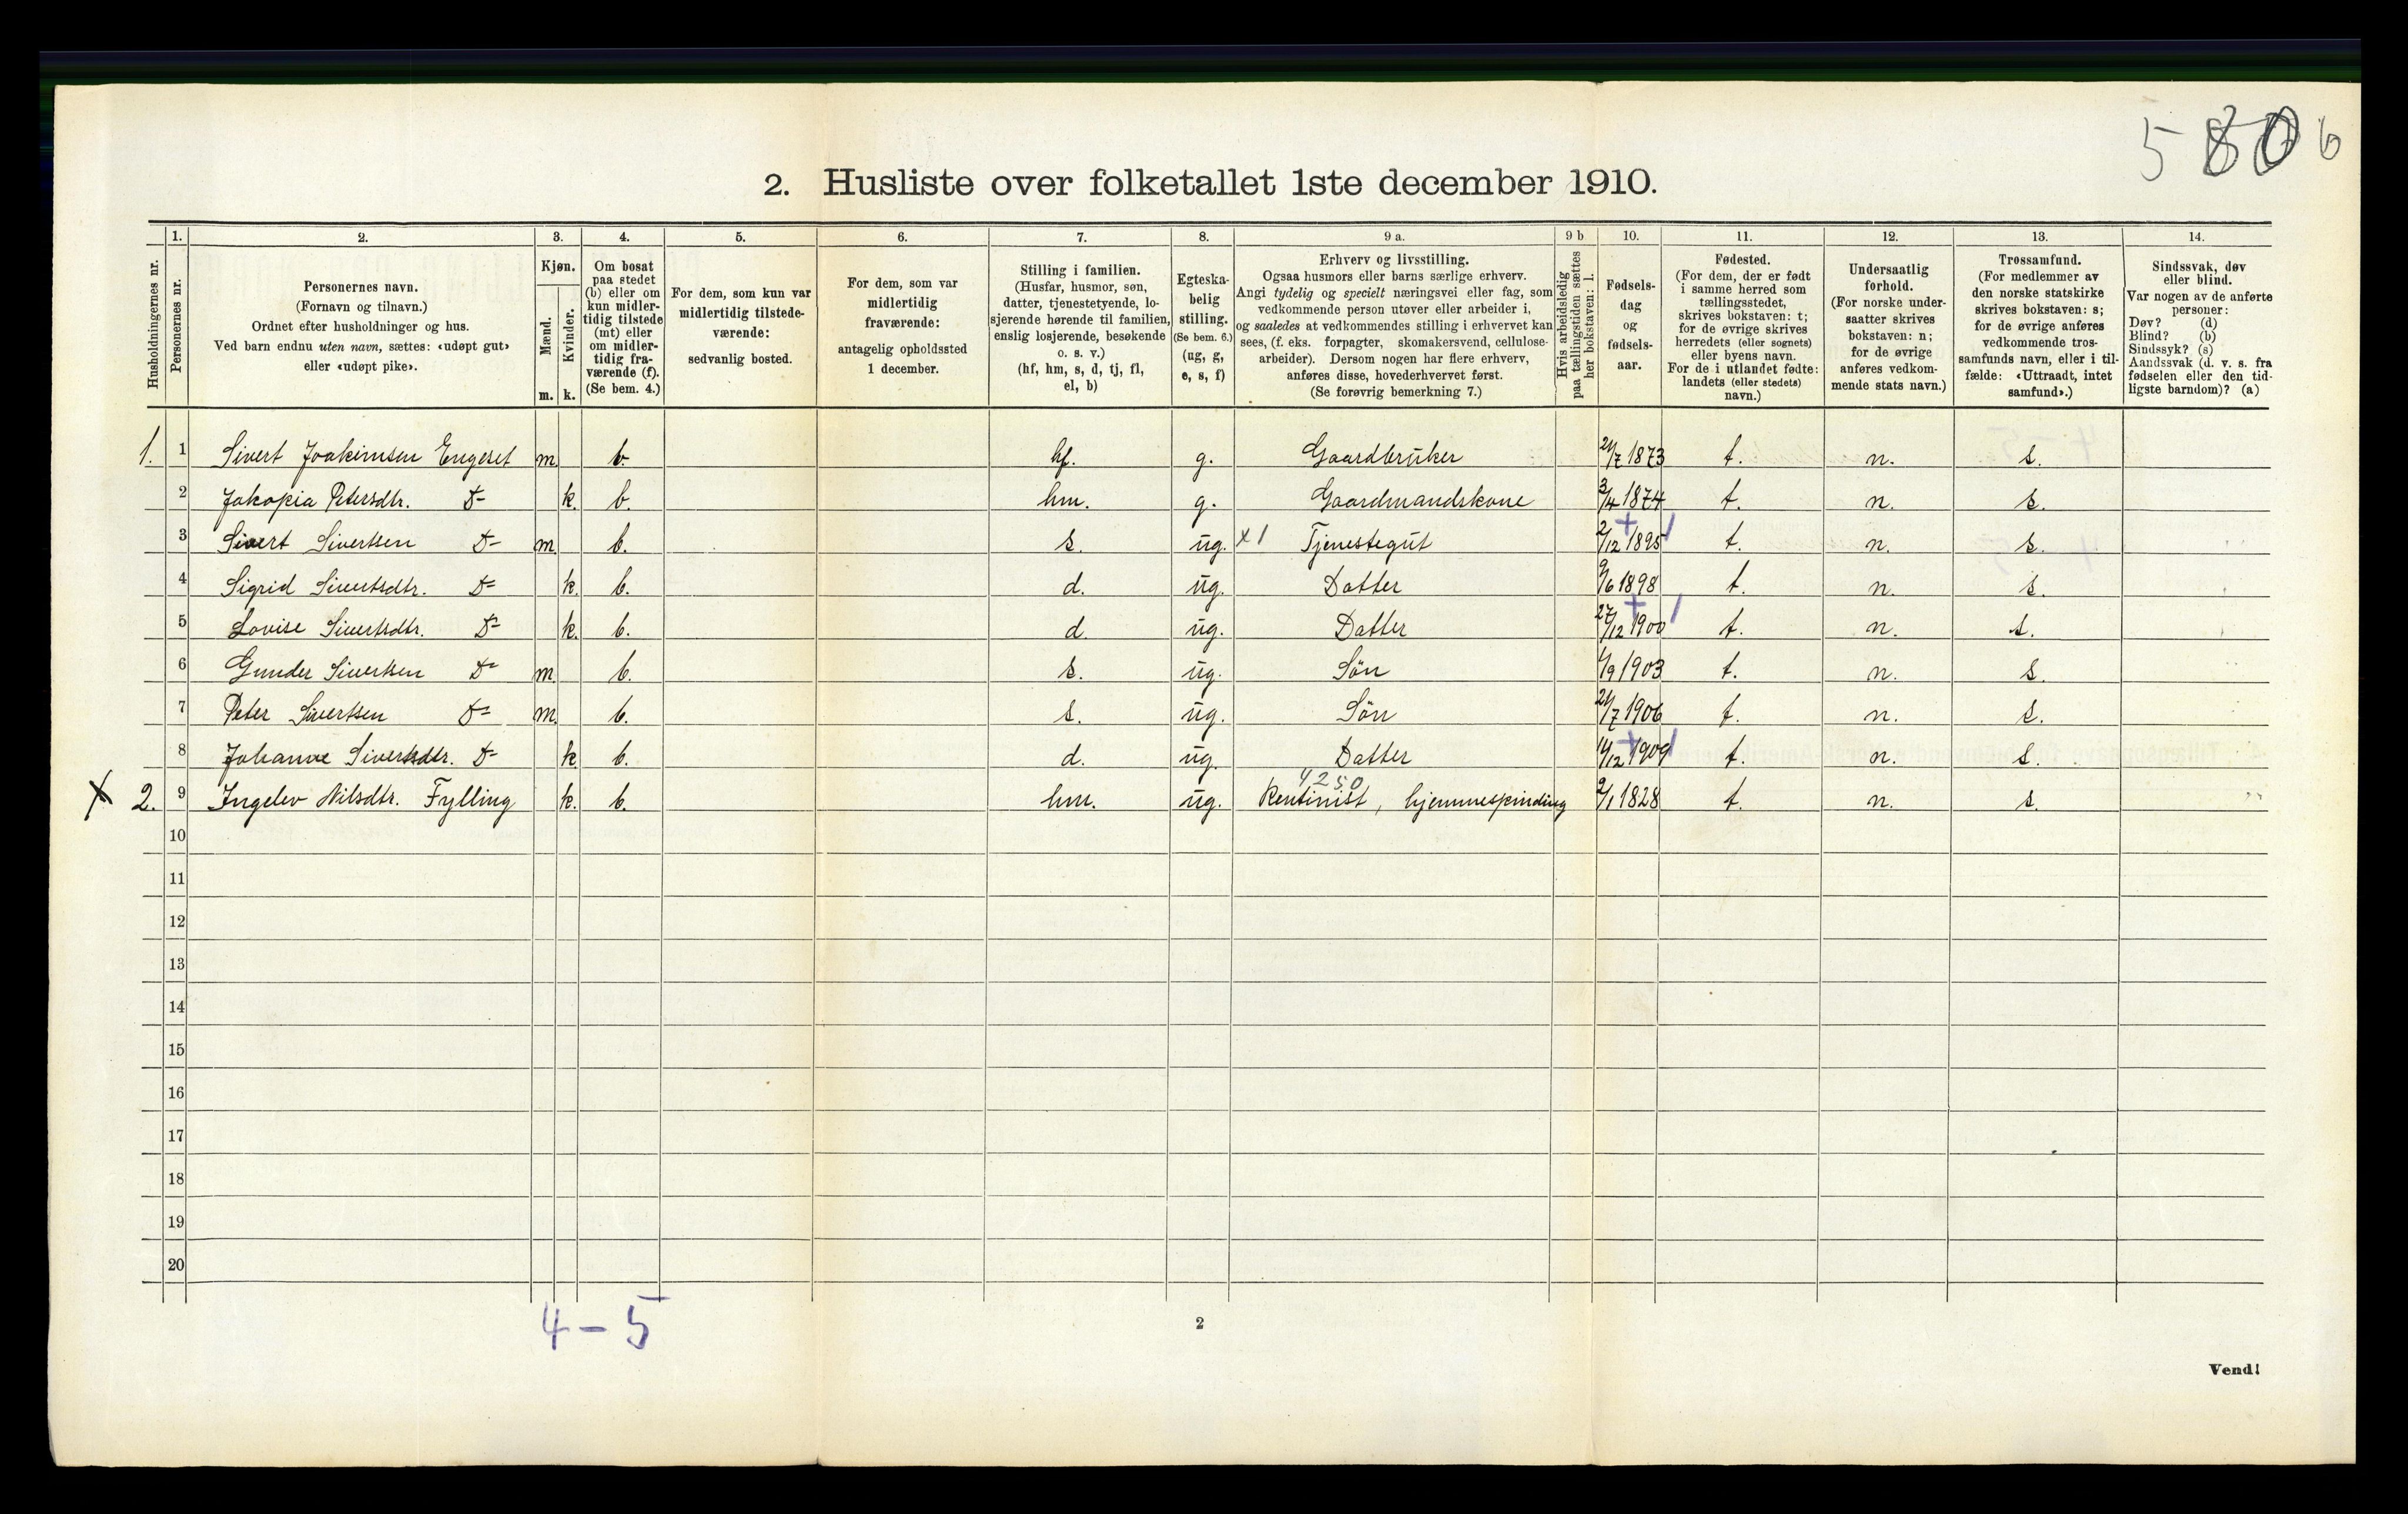 5 80 6
2. Husliste over folketallet 1ste december 1910.
Husholdningernes nr.
1.
Personernes nr.
2.
Personernes navn.
(Fornavn og tilnavn.)
Ordnet efter husholdninger og hus.
Ved barn endnu uten navn, sættes: «udøpt gut»
eller «udøpt pike».
3.
Kjøn.
Mænd.
Kvinder.
m. k.
4.
Om bosat
paa stedet
(b) eller om
kun midler-
tidig tilstede
(mt) eller
om midler-
tidig fra-
værende (f).
(Se bem. 4.)
5.
For dem, som kun var
midlertidig tilstede-
værende:
sedvanlig bosted.
6.
For dem, som var
midlertidig
fraværende:
antagelig opholdssted
1 december.
7.
Stilling i familien.
(Husfar, husmor, søn,
datter, tjenestetyende, lo-
sjerende hørende til familien,
enslig losjerende, besøkende
o. s. v.)
(hf, hm, s, d, tj, fl,
el, b)
8.
Egteska-
belig
stilling.
(Se bem. 6.)
(ug, g,
e, s, f)
9 a.
Erhverv og livsstilling.
Ogsaa husmors eller barns særlige erhverv.
Angi tydelig og specielt næringsvei eller fag, som
vedkommende person utøver eller arbeider i,
og saaledes at vedkommendes stilling i erhvervet kan
sees, (f. eks. forpagter, skomakersvend, cellulose-
arbeider). Dersom nogen har flere erhverv,
anføres disse, hovederhvervet først.
(Se forøvrig bemerkning 7.)
9 b
Hvis arbeidsledig
paa tællingstiden sættes
her bokstaven: l.
10.
Fødsels-
dag
og
fødsels-
aar.
11.
Fødested.
(For dem, der er født
i samme herred som
tællingsstedet,
skrives bokstaven: t;
for de øvrige skrives
herredets (eller sognets)
eller byens navn.
For de i utlandet fødte:
landets (eller stedets)
navn.)
12.
Undersaatlig
forhold.
(For norske under-
saatter skrives
bokstaven: n;
for de øvrige
anføres vedkom-
mende stats navn.)
13.
Trossamfund.
(For medlemmer av
den norske statskirke
skrives bokstaven: s;
for de øvrige anføres
vedkommende tros-
samfunds navn, eller i til-
fælde: «Uttraadt, intet
samfund».)
14.
Sindssvak, døv
eller blind.
Var nogen av de anførte
personer:
Døv? (d)
Blind? (b)
Sindssyk? (s)
Aandssvak (d. v. s. fra
fødselen eller den tid-
ligste barndom)? (a)
1. 1 Sivert Joakimsen Engeset m. b. hf. g. Gaardbruker 21/7 1873 t. n. s.
2 Jakopia Petersdtr. D- k. b. hm. g. Gaardmandskone 3/4 1874 t. n. s.
3 Sivert Sivertsen D- m. b. s. ug. x1 Tjenestegut 2/12 1895 t. n. s.
4 Sigrid Sivertsdtr. D- k. b. d. ug. Datter 9/6 1898 t. n. s.
5 Lovise Sivertsdtr. D- k. b. d. ug. Datter 27/12 1900 t. n. s.
6 Gunder Sivertsen D- m. b. s. ug. Søn 1/9 1903 t. n. s.
7 Peter Sivertsen D- m. b. s. ug. Søn 21/7 1906 t. n. s.
8 Johanne Sivertsdtr. D- k. b. d. ug. Datter 14/12 1909 t. n. s.
4250
x 2. 9 Ingelev Nilsdtr. Fylling k. b. hm. ug. Rentinist, hjemmespinding 2/1 1828 t. n. s.
10
11
12
13
14
15
16
17
18
19
20
4 - 5
2
Vend!